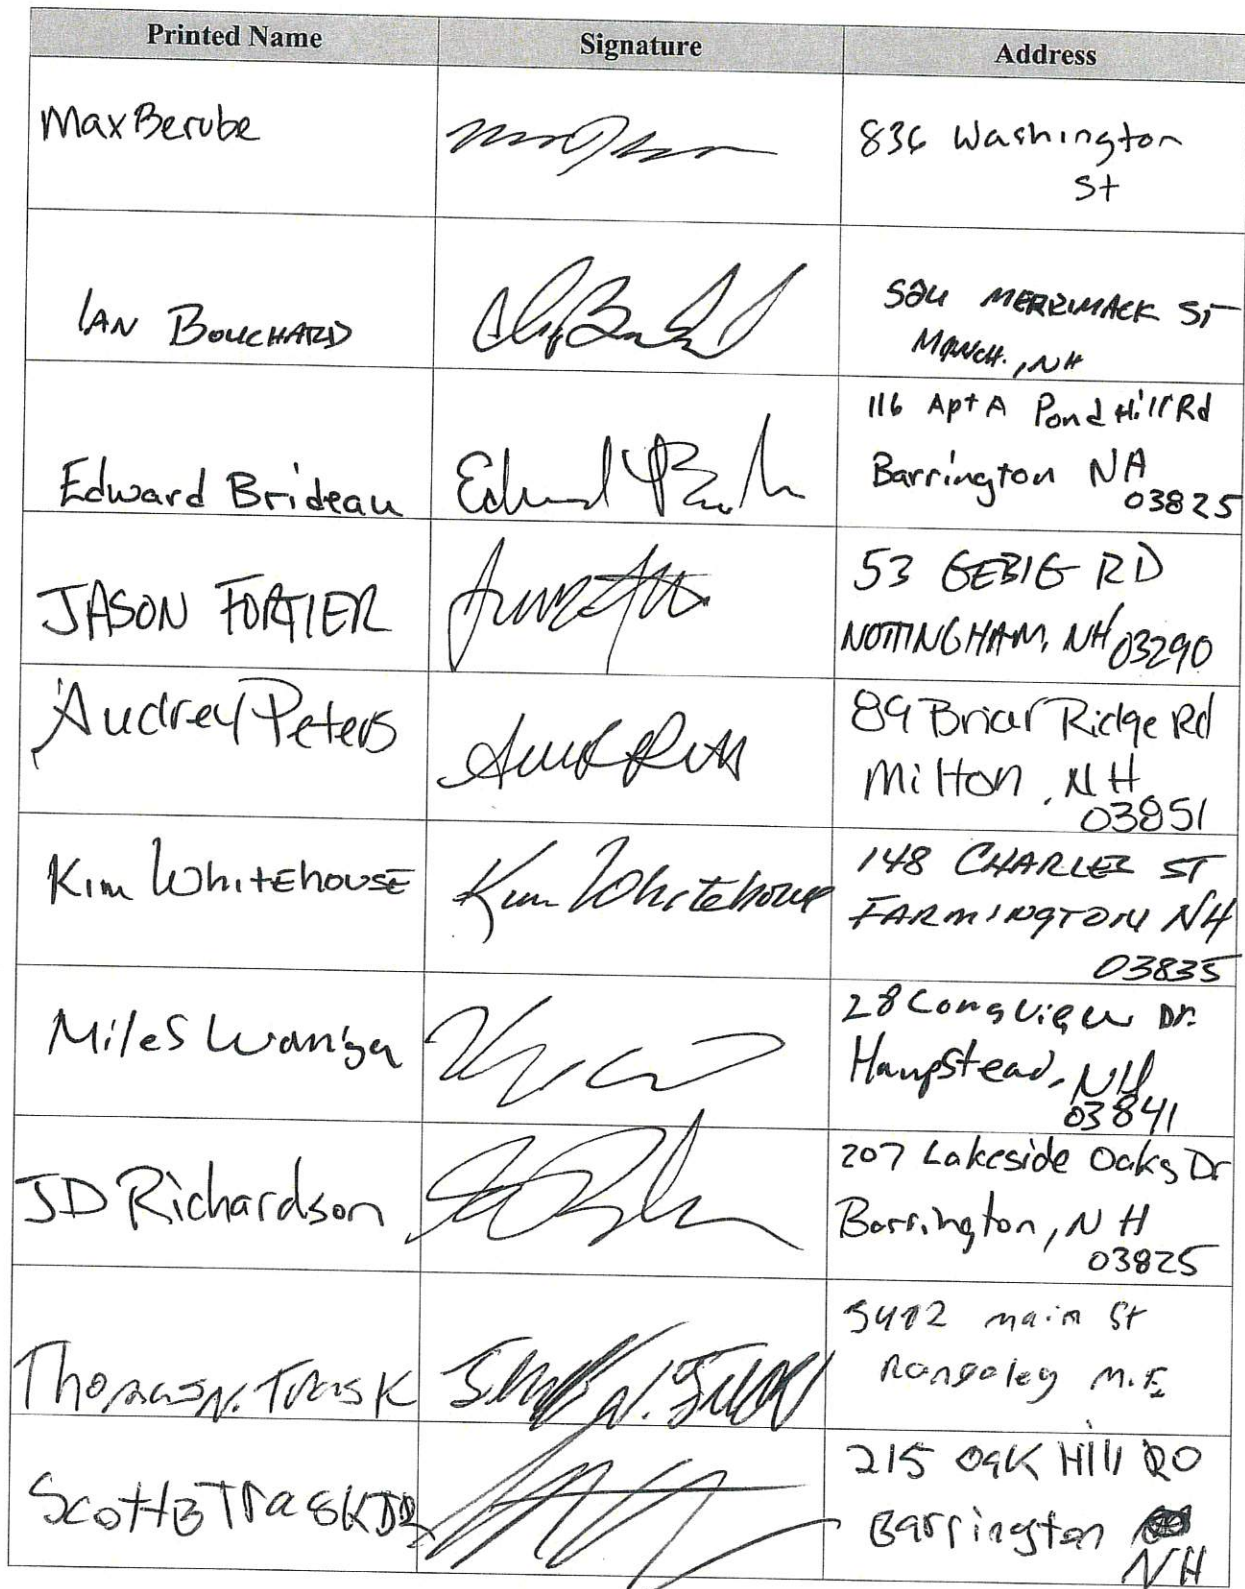 Printed Name Signature Address
Max Berube
836 Washington
St
IAN BOUCHARD
MERRIMACK ST
MANCH., NH
Edward Brideau
116 Apt A Pond Hill Rd
Barrington NH
03825
JASON FORTIER
53 GEBIG RD
NOTTINGHAM, NH 03290
Audrey Peters
89 Briar Ridge Rd
Milton, NH
03851
Kim Whitehouse Kim Whitehouse
148 CHARLES ST
FARMINGTON NH
03835
Miles
28 Longview Dr.
Hampstead, NH
03841
JD Richardson
207 Lakeside Oaks Dr
Barrington, NH
03825
Thomas N. Trask
main St
Rangeley M.E
Scott B Trask JR
215 Oak Hill RD
Barrington
NH